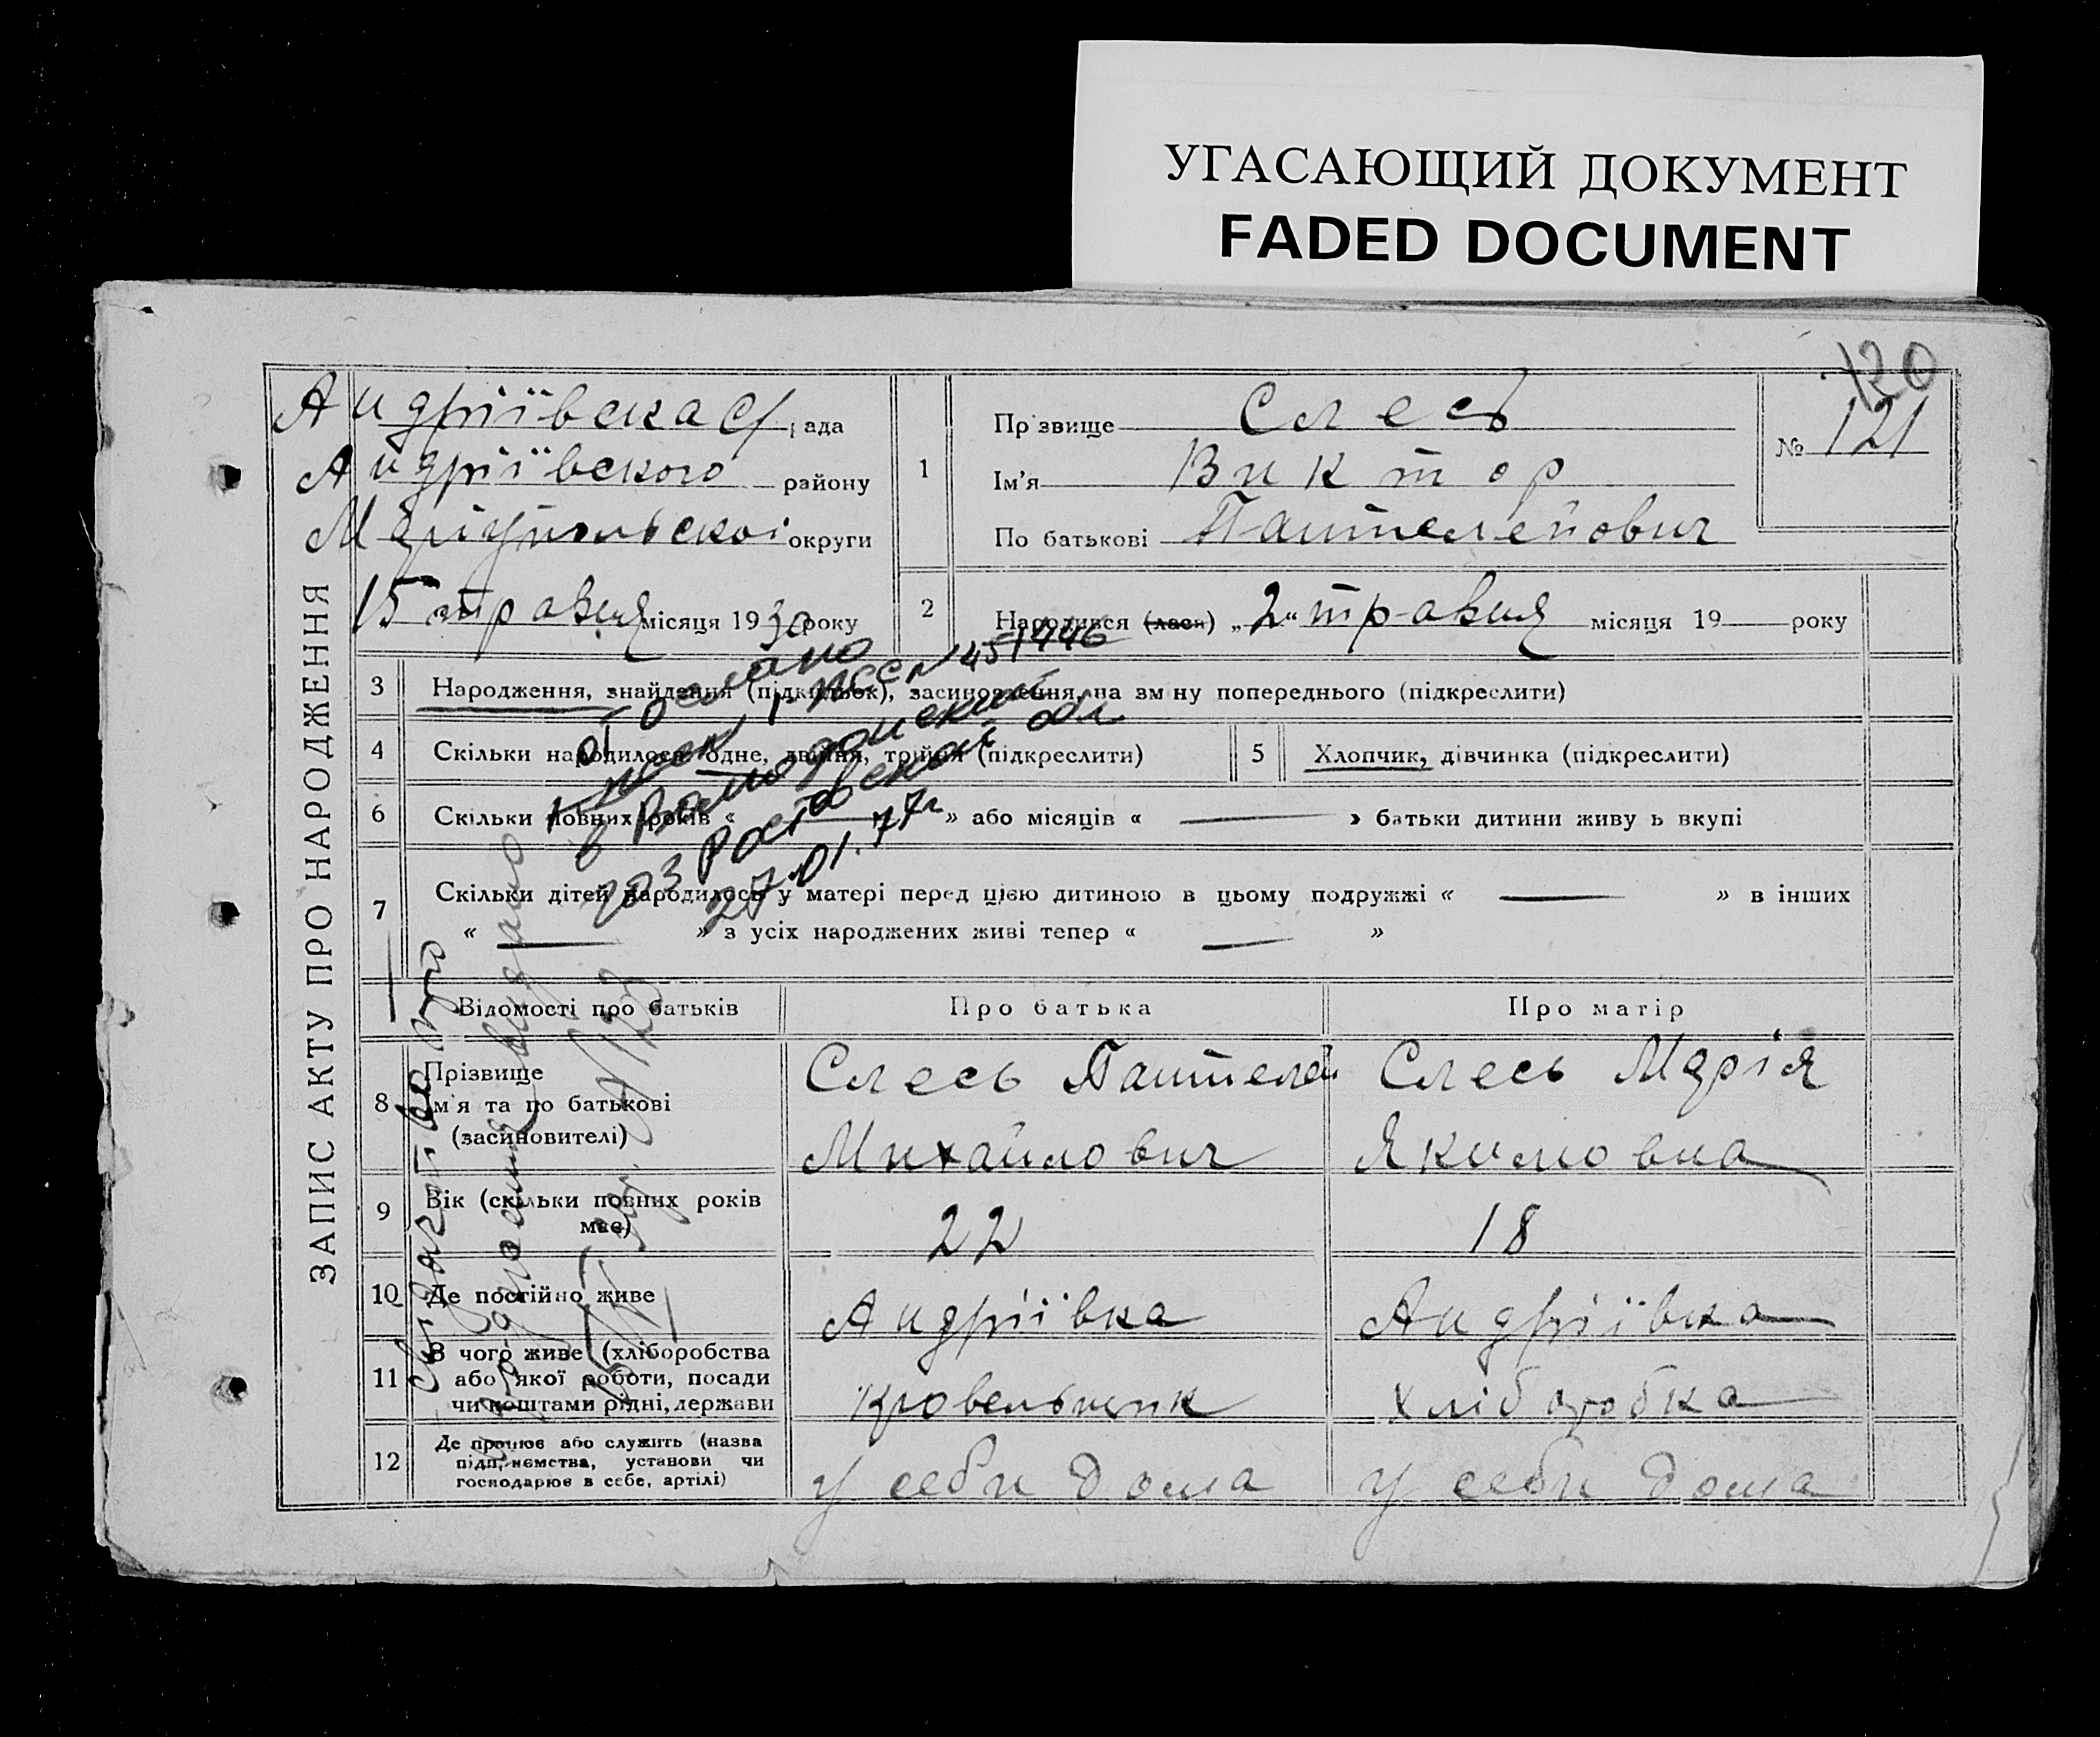 УГАСАЮЩИЙ ДОКУМЕНТ
FADED DOCUMENT
120
ЗАПИС АКТУ ПРО НАРОДЖЕННЯ
Андріївска С/рада
Андріївского району
Маріупольскоі округи
15 травня місяця 1930 року
1 Прізвище Слесь
Ім'я Виктор
По батькові Пантелейович
№ 121
2 Народився (лася) „2" травня місяця 19 року
3 Народження, знайдення (підкидьок), засиновлення, на зміну попереднього (підкреслити)
4 Скільки народилося одне, двійня, трійня (підкреслити)
5 Хлопчик, дівчинка (підкреслити)
6 Скільки повних років « » або місяців « » батьки дитини живуть вкупі
7 Скільки дітей народилось у матері перед цією дитиною в цьому подружжі « » в інших
« » з усіх народжених живі тепер « »
Отослано
РПССN 451446
в Волгодонский
Ростовской обл
27.01.77г
Відомості про батьків Про батька Про матір
8 Прізвище
Ім'я та по батькові
(засиновителі)
Слесь Пантелей
Михайлович
Слесь Марія
Якимовна
9 Вік (скільки повних років
має)
22 18
10 Де постійно живе Андріївка Андріївка
11 З чого живе (хліборобства
або якої роботи, посади
чи коштами рідні, держави
Кровельщик Хліборобка
12 Де працює або служить (назва
підприємства, установи чи
господарює в себе, артілі)
у себи дома у себи дома